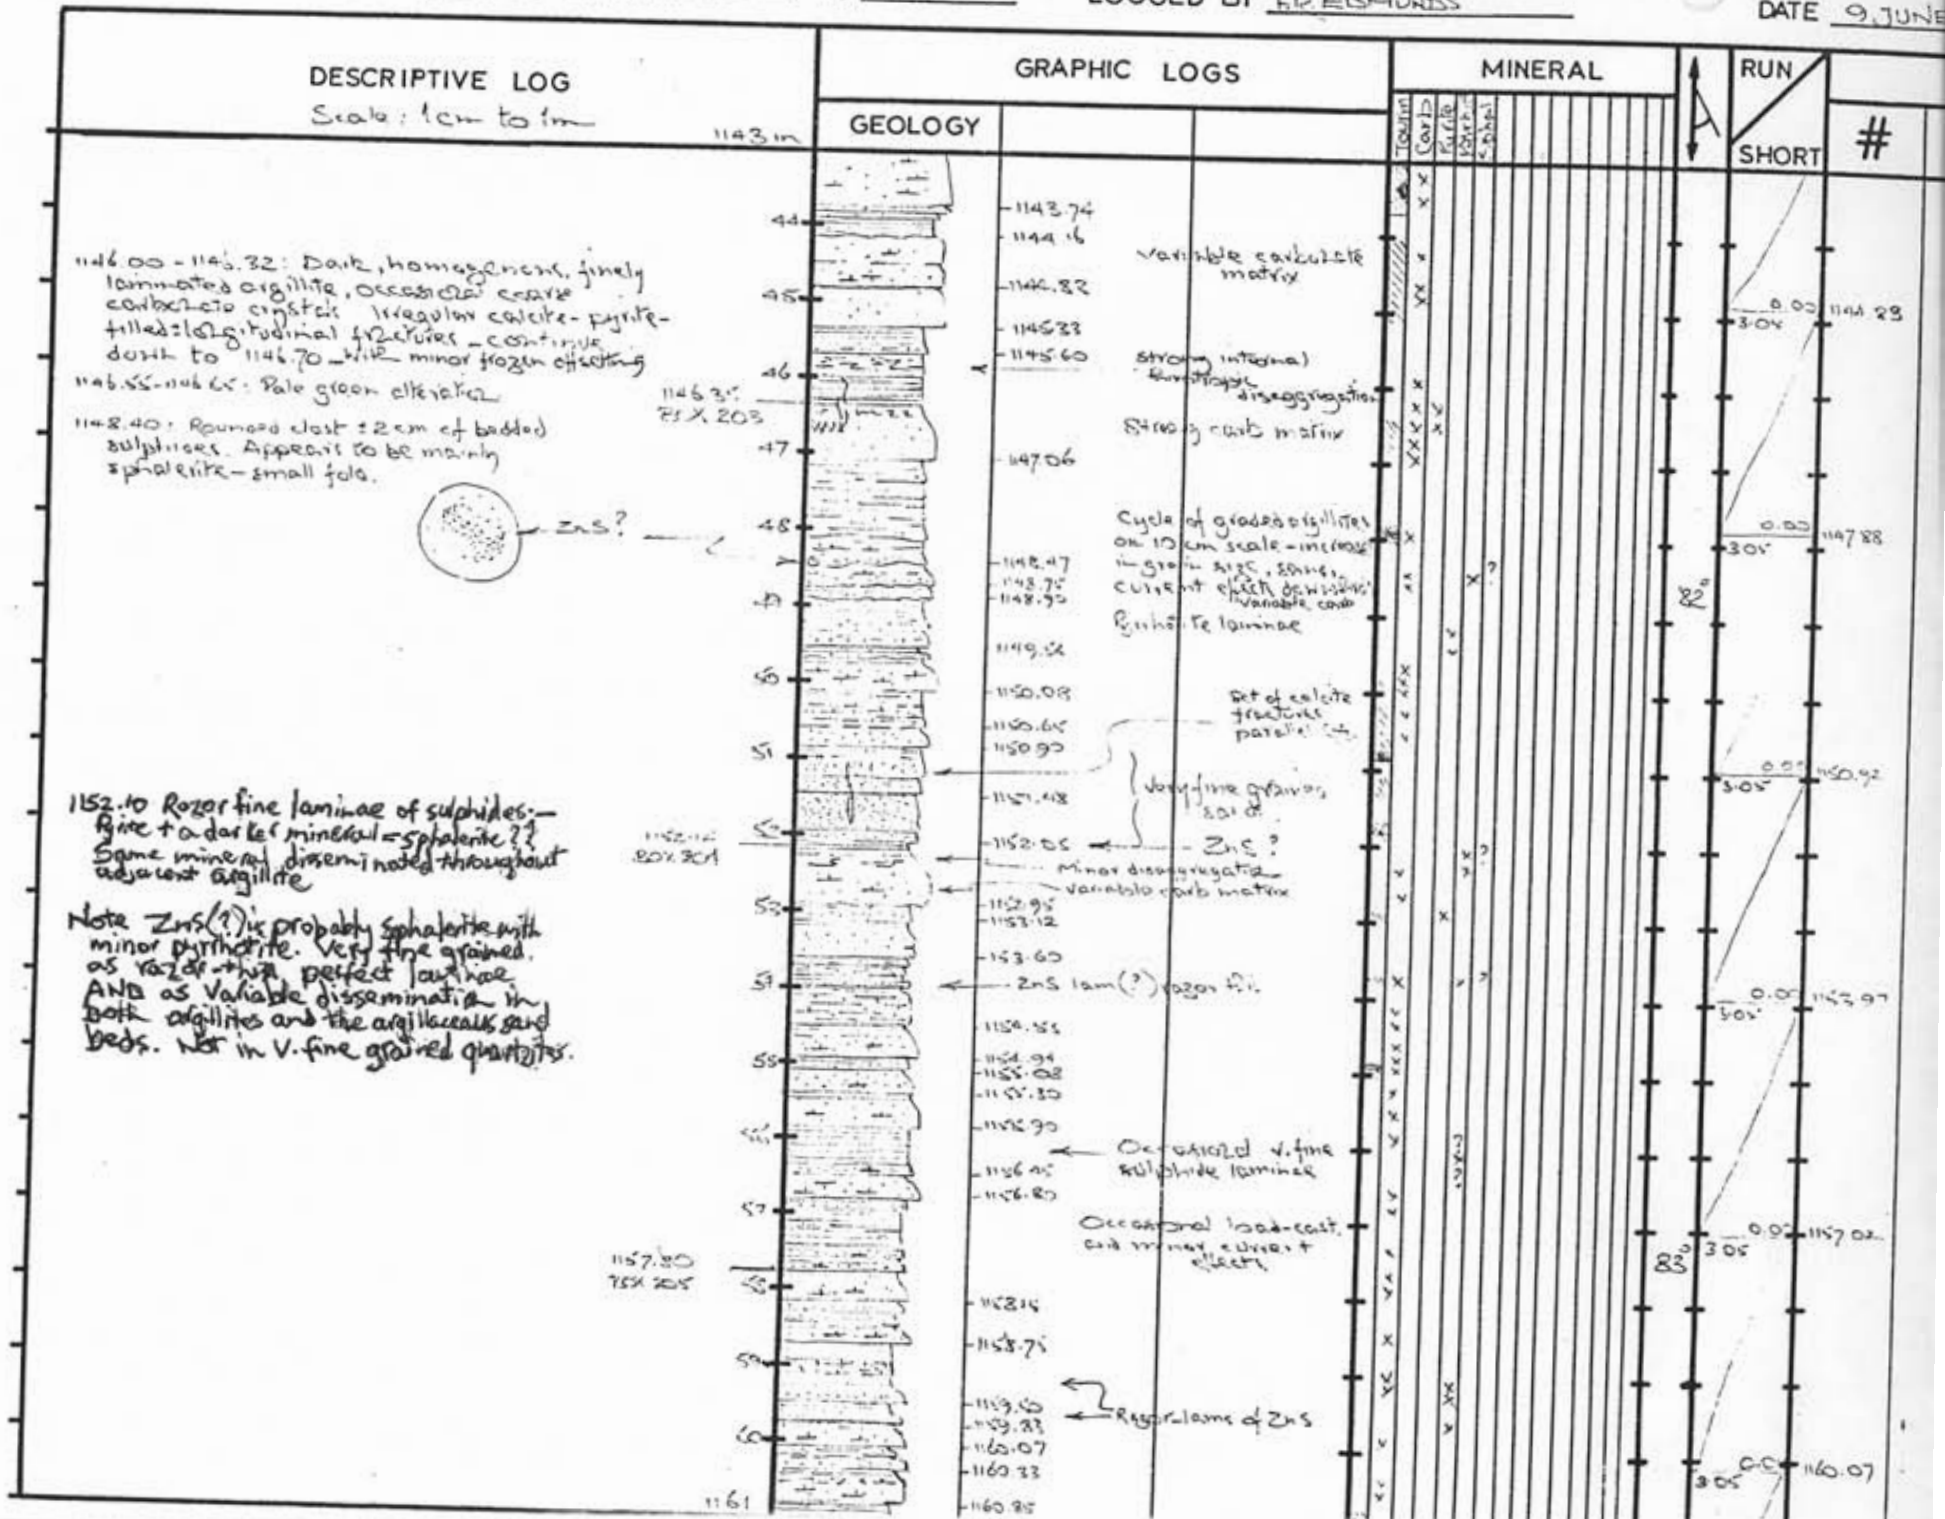 LOGGED BY
DATE 9, JUNE
DESCRIPTIVE LOG
Scale: 1cm to 1m
1143 m
GRAPHIC LOGS
GEOLOGY
MINERAL
Tourm
Carb
Pyrite
RUN
SHORT
#
1146.00 - 1146.32: Dark, homogeneous, finely
laminated argillite, occasional coarse
carbonate crystals Irregular calcite-pyrite-
filled longitudinal fractures - continue
down to 1146.70 with minor frozen offsetting
1146.55-1146.65: Pale green alteration
1148.40: Rounded clast ±2cm of bedded
sulphides. Appears to be mainly
sphalerite - small fold.
ZnS?
1152.10 Razor fine laminae of sulphides:-
Pyrite + a darker mineral = sphalerite??
Same mineral disseminated throughout
adjacent argillite
Note ZnS(?) is probably sphalerite with
minor pyrrhotite. Very fine grained.
as razor-thin, perfect laminae
AND as variable dissemination in
both argillites and the argillaceous sand
beds. Not in V. fine grained quartzites.
1157.80
75X 205
44
45
46
47
48
49
50
51
52
53
54
55
56
57
58
59
60
1161
1143.74
1144.16
1144.83
1145.33
1145.60
1147.06
1148.47
1148.75
1148.90
1150.08
1150.65
1150.90
1151.48
1152.05
1152.95
1153.12
1153.60
1154.55
1154.94
1155.08
1155.30
1155.90
1156.45
1156.80
1158.15
1158.75
1159.50
1159.83
1160.07
1160.33
1160.85
variable carbonate
matrix
strong internal
disaggregation
Strong carb matrix
Cycle of graded argillites
on 10 cm scale - increase
in grain size, sand,
current effects downwards
variable carb
Pyrrhotite laminae
Set of calcite
fractures
parallel
Very fine grained
sand
ZnS?
Minor disaggregation
variable carb matrix
ZnS lam(?) razor
Occasional v. fine
sulphide laminae
Occasional load-cast,
and minor current
effects
Razor-lams of ZnS
82°
83°
0.00 1144.83
3.05
0.00 1147.88
3.05
0.00 1150.92
3.05
0.00 1153.97
3.05
0.00 1157.02
3.05
1160.07
3.05